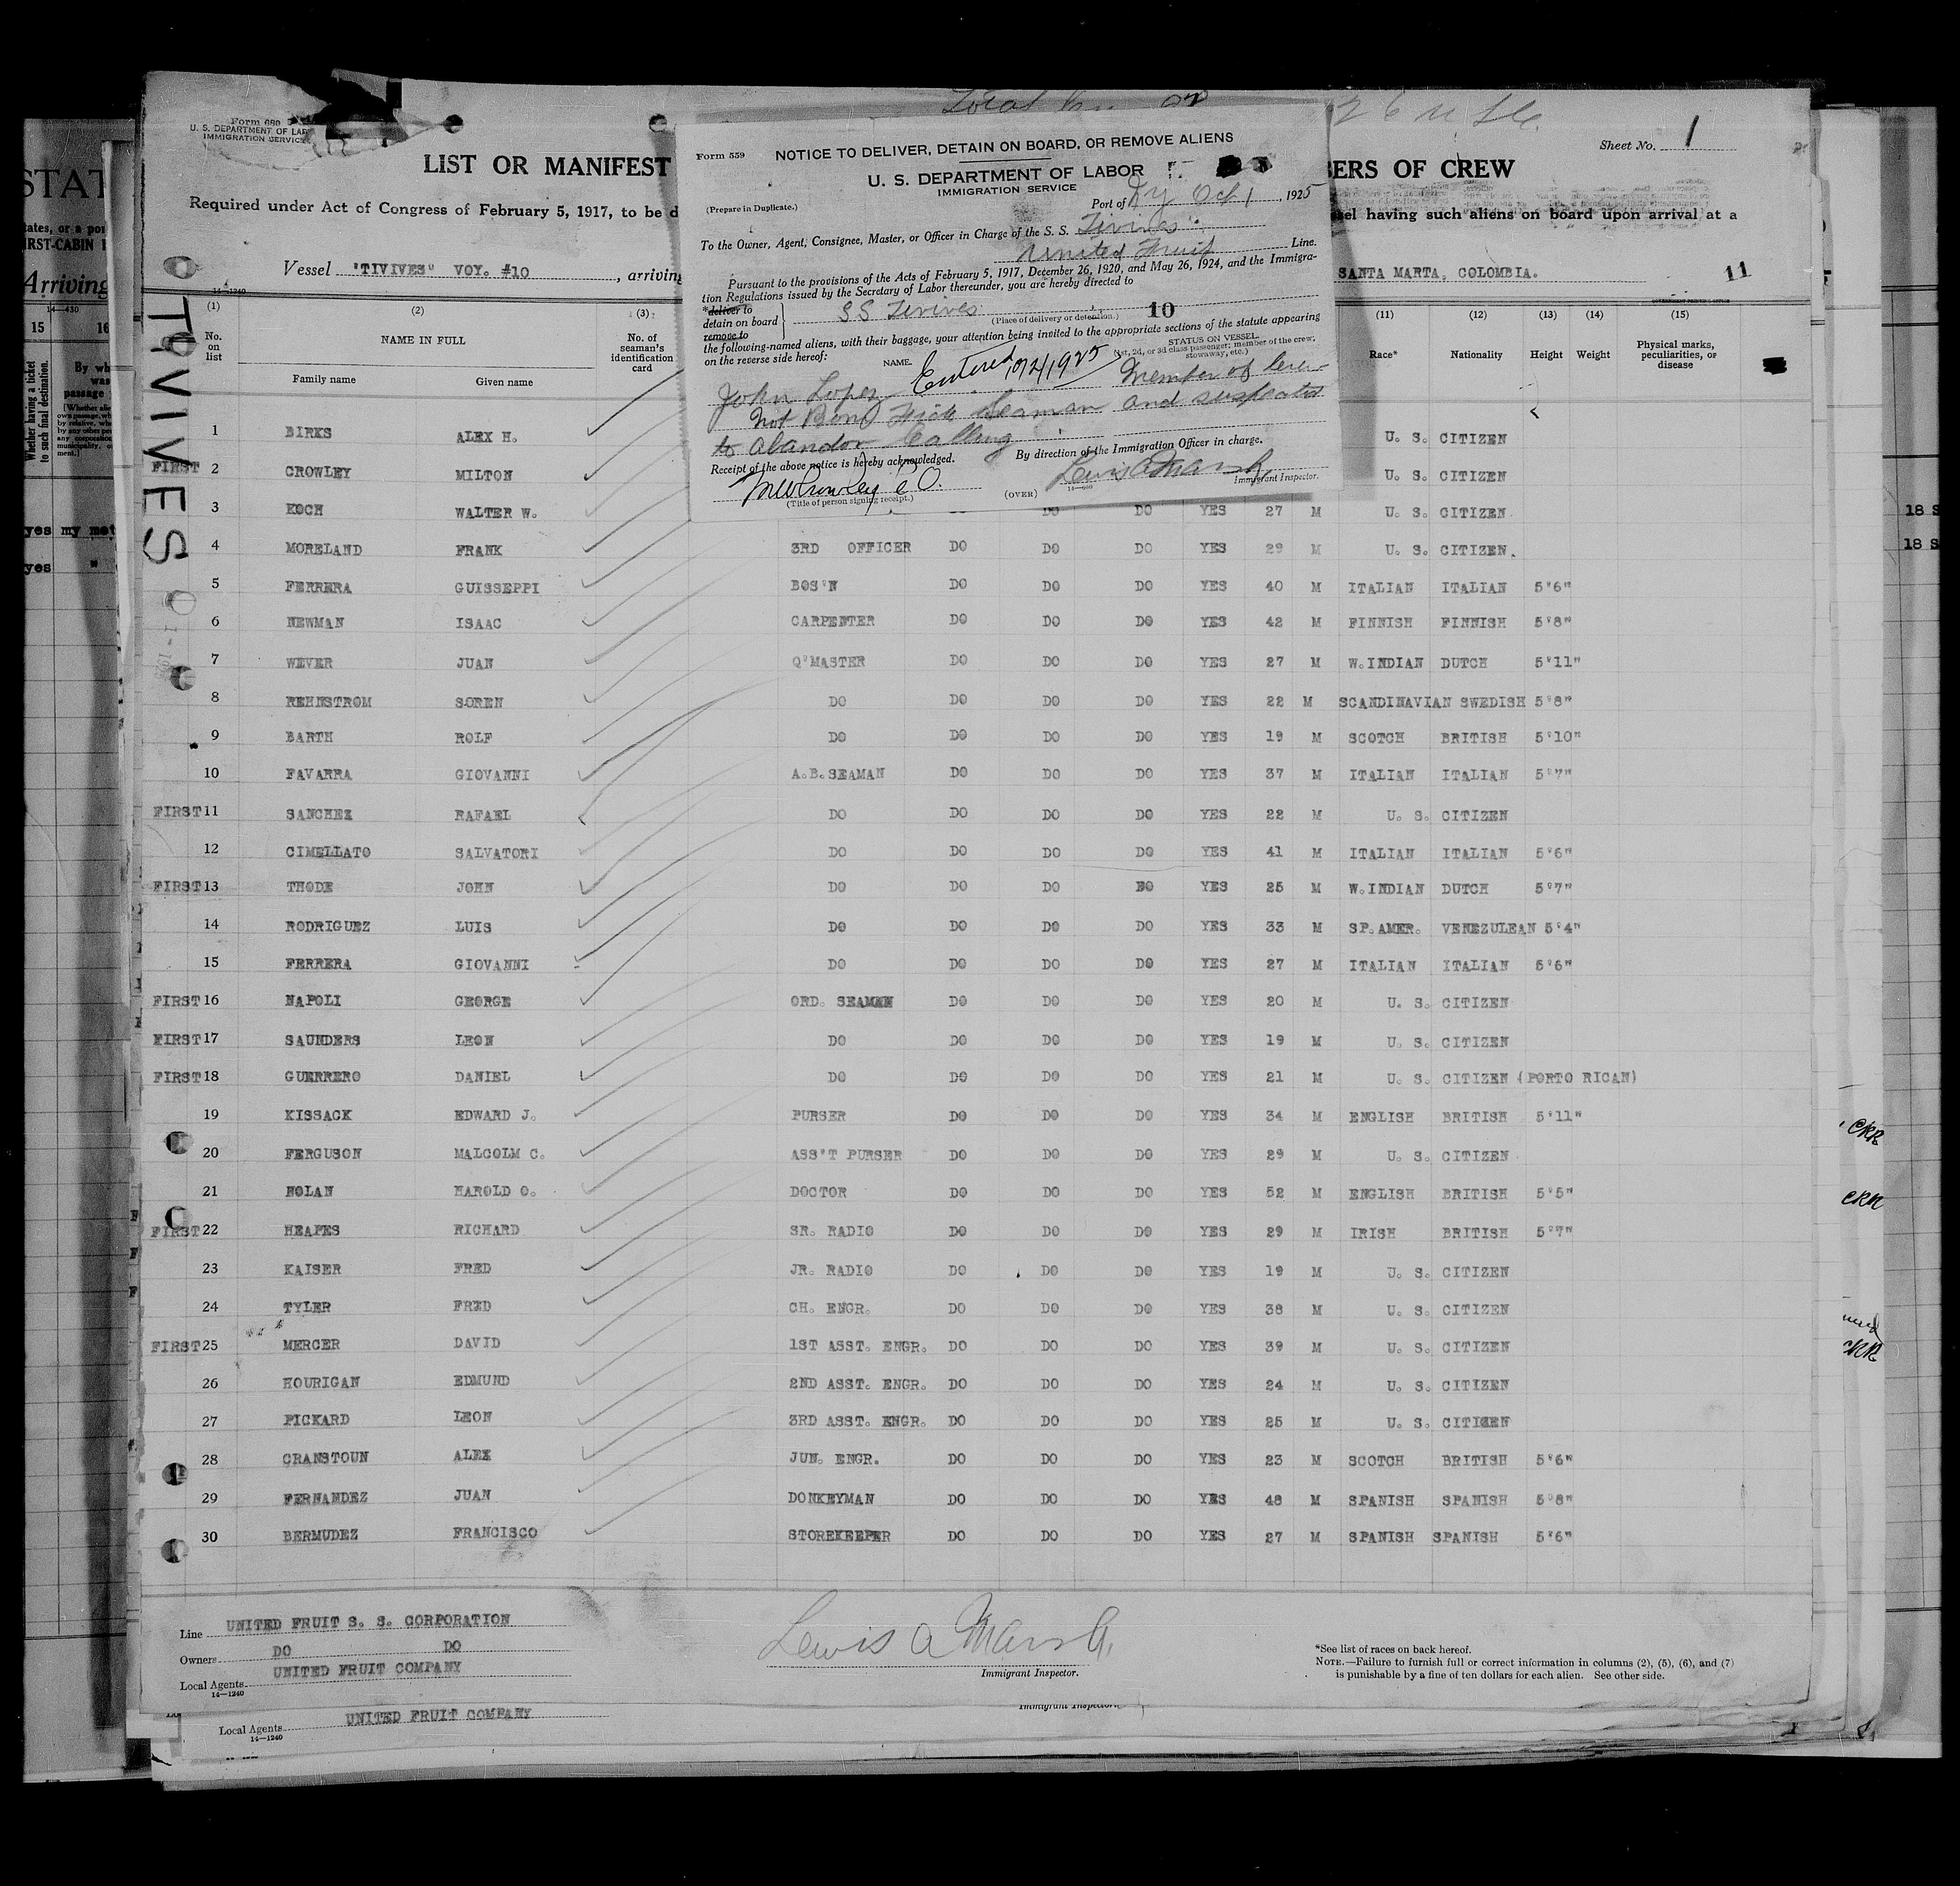 Form 680
U. S. DEPARTMENT OF LAB
IMMIGRATION SERVICE
Sheet No. 1
LIST OR MANIFEST
BERS OF CREW
Required under Act of Congress of February 5, 1917, to be d
sel having such aliens on board upon arrival at a
Vessel "TIVIVES" VOY. #10, arriving
SANTA MARTA, COLOMBIA.
11
14—1240
Form 559
NOTICE TO DELIVER, DETAIN ON BOARD, OR REMOVE ALIENS
U. S. DEPARTMENT OF LABOR
IMMIGRATION SERVICE
(Prepare in Duplicate.)
Port of NY Oct 1, 1925
To the Owner, Agent, Consignee, Master, or Officer in Charge of the S. S. Tivives
United Fruit Line.
Pursuant to the provisions of the Acts of February 5, 1917, December 26, 1920, and May 26, 1924, and the Immigra-
tion Regulations issued by the Secretary of Labor thereunder, you are hereby directed to
*deliver to
detain on board
remove to
SS Tivives
(Place of delivery or detention.)
10
the following-named aliens, with their baggage, your attention being invited to the appropriate sections of the statute appearing
on the reverse side hereof:
NAME.
STATUS ON VESSEL.
(1st, 2d, or 3d class passenger; member of the crew; stowaway, etc.)
Entered 10/2/1925
John Lopez Member of Crew
Not Bona Fide Seaman and suspected
to abandon Calling
Receipt of the above notice is hereby acknowledged.
By direction of the Immigration Officer in charge.
Lewis A Marsh
Immigrant Inspector.
(Title of person signing receipt.)
(OVER)
TIVIVES
(1) (2) (3) (11) (12) (13) (14) (15)
No. on list
NAME IN FULL
Family name Given name
No. of seaman's identification card
Race* Nationality Height Weight Physical marks, peculiarities, or disease
1 BIRKS ALEX H. U. S. CITIZEN
FIRST 2 CROWLEY MILTON U. S. CITIZEN
3 KOCH WALTER W. DO DO YES 27 M U. S. CITIZEN
4 MORELAND FRANK 3RD OFFICER DO DO DO YES 29 M U. S. CITIZEN.
5 FERRERA GUISSEPPI BOS'N DO DO DO YES 40 M ITALIAN ITALIAN 5'6"
6 NEWMAN ISAAC CARPENTER DO DO DO YES 42 M FINNISH FINNISH 5'8"
7 WEVER JUAN Q'MASTER DO DO DO YES 27 M W.INDIAN DUTCH 5'11"
8 REHNSTROM SOREN DO DO DO DO YES 22 M SCANDINAVIAN SWEDISH 5'8"
9 BARTH ROLF DO DO DO DO YES 19 M SCOTCH BRITISH 5'10"
10 FAVARRA GIOVANNI A.B.SEAMAN DO DO DO YES 37 M ITALIAN ITALIAN 5'7"
FIRST 11 SANCHEZ RAFAEL DO DO DO DO YES 22 M U. S. CITIZEN
12 CIMELLATO SALVATORI DO DO DO DO YES 41 M ITALIAN ITALIAN 5'6"
FIRST 13 THODE JOHN DO DO DO DO YES 25 M W.INDIAN DUTCH 5'7"
14 RODRIGUEZ LUIS DO DO DO DO YES 33 M SP.AMER. VENEZULEAN 5'4"
15 FERRERA GIOVANNI DO DO DO DO YES 27 M ITALIAN ITALIAN 5'6"
FIRST 16 NAPOLI GEORGE ORD. SEAMAN DO DO DO YES 20 M U. S. CITIZEN
FIRST 17 SAUNDERS LEON DO DO DO DO YES 19 M U. S. CITIZEN
FIRST 18 GUERRERO DANIEL DO DO DO DO YES 21 M U. S. CITIZEN (PORTO RICAN)
19 KISSACK EDWARD J. PURSER DO DO DO YES 34 M ENGLISH BRITISH 5'11"
20 FERGUSON MALCOLM C. ASS'T PURSER DO DO DO YES 29 M U. S. CITIZEN
21 NOLAN HAROLD O. DOCTOR DO DO DO YES 52 M ENGLISH BRITISH 5'5"
FIRST 22 HEAPES RICHARD SR. RADIO DO DO DO YES 29 M IRISH BRITISH 5'7"
23 KAISER FRED JR. RADIO DO DO DO YES 19 M U. S. CITIZEN
24 TYLER FRED CH. ENGR. DO DO DO YES 38 M U. S. CITIZEN
FIRST 25 MERCER DAVID 1ST ASST. ENGR. DO DO DO YES 39 M U. S. CITIZEN
26 HOURIGAN EDMUND 2ND ASST. ENGR. DO DO DO YES 24 M U. S. CITIZEN
27 PICKARD LEON 3RD ASST. ENGR. DO DO DO YES 25 M U. S. CITIZEN
28 CRANSTOUN ALEX JUN. ENGR. DO DO DO YES 23 M SCOTCH BRITISH 5'6"
29 FERNANDEZ JUAN DONKEYMAN DO DO DO YES 48 M SPANISH SPANISH 5'8"
30 BERMUDEZ FRANCISCO STOREKEEPER DO DO DO YES 27 M SPANISH SPANISH 5'6"
Line UNITED FRUIT S. S. CORPORATION
Owners DO DO
Local Agents UNITED FRUIT COMPANY
14—1240
Lewis A Marsh
Immigrant Inspector.
*See list of races on back hereof.
NOTE.—Failure to furnish full or correct information in columns (2), (5), (6), and (7)
is punishable by a fine of ten dollars for each alien. See other side.
Local Agents UNITED FRUIT COMPANY
14—1240
Immigrant Inspector.
STAT
Arriving
14—430
15 16
yes my mot
yes "
18 S
18 S
CRR
CRR
CRR